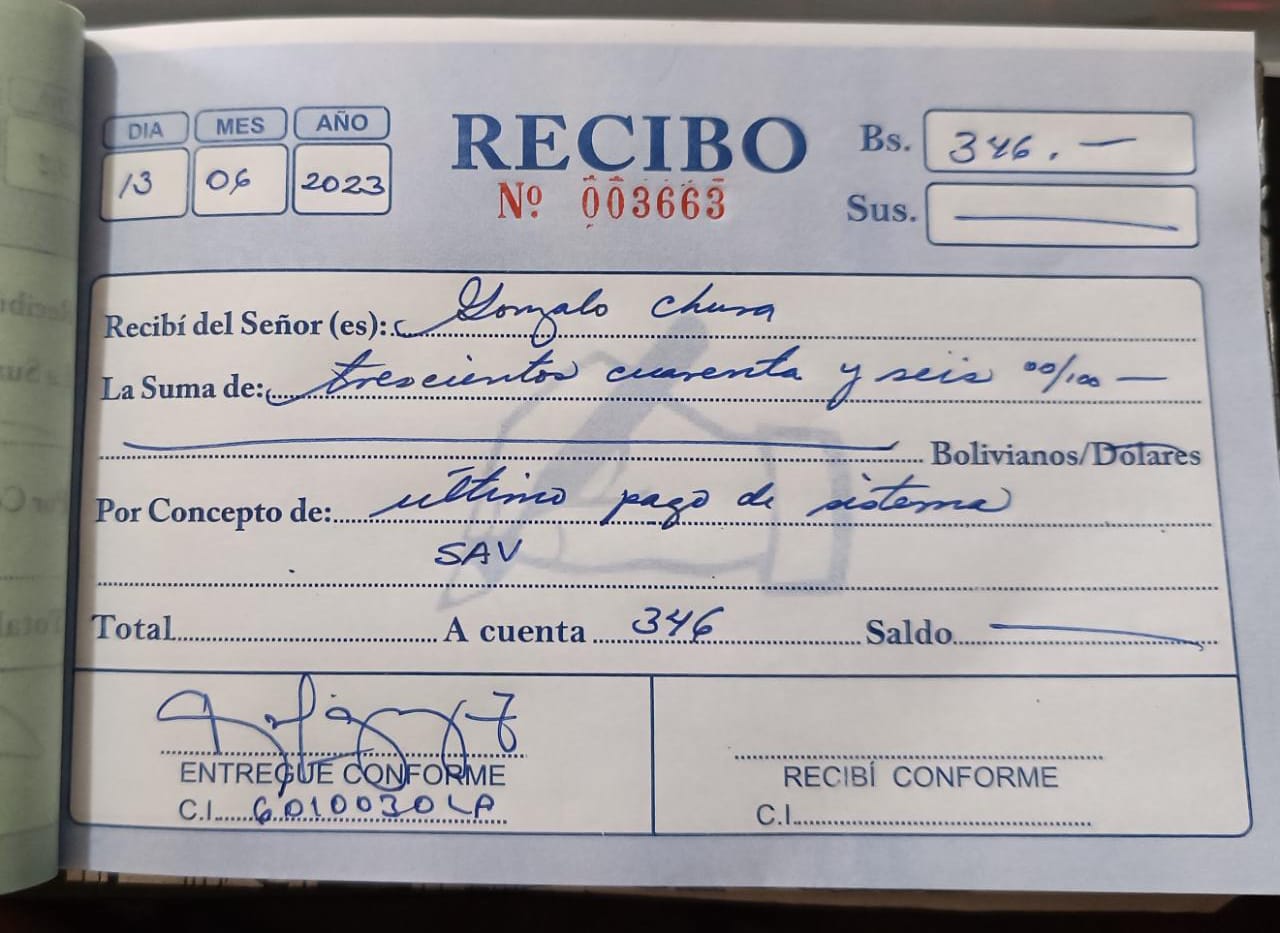 DIA MES AÑO
13 06 2023
RECIBO
Nº 003663
Bs. 346.—
Sus. —
Recibí del Señor (es): Gonzalo Chura
La Suma de: trescientos cuarenta y seis 00/100 —
— Bolivianos/Dolares
Por Concepto de: último pago de sistema
SAV
Total A cuenta 346 Saldo —
ENTREGUE CONFORME
C.I. 6010030 LP
RECIBÍ CONFORME
C.I.